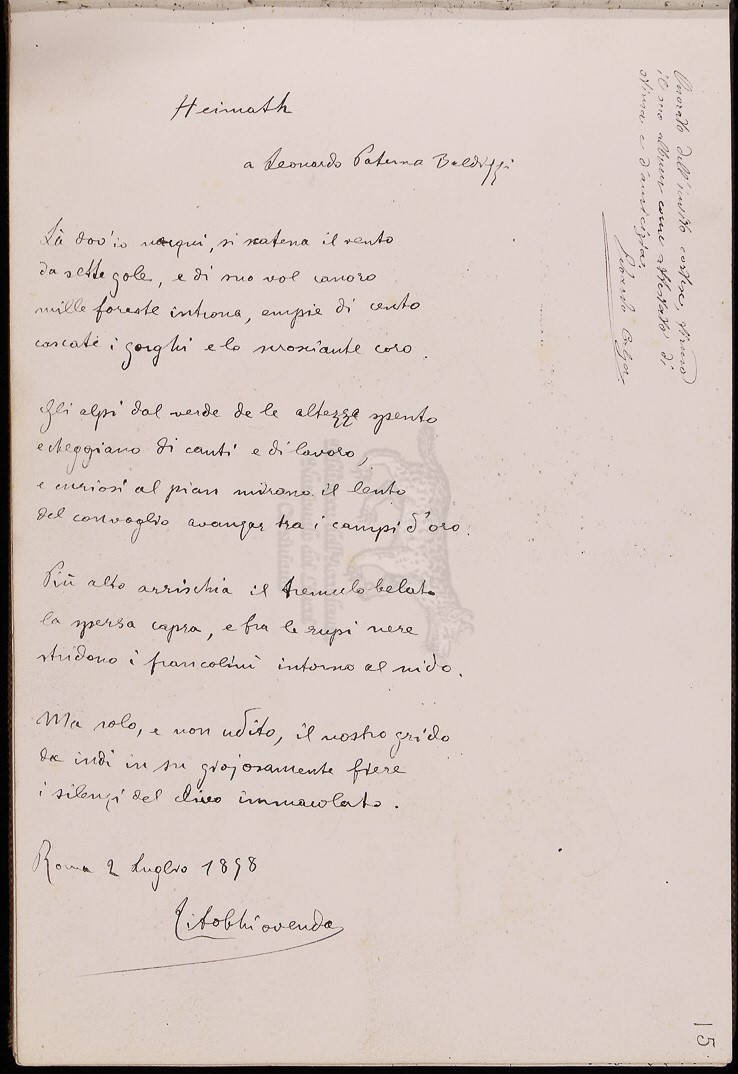 Heimath
a Leonardo Paterna Baldizzi
Là dov'io nacqui, si scatena il vento
da sette gole, e di suo vol canoro
mille foreste introna, empie di cento
cascate i gorghi e lo scrosciante coro.
Gli alpi dal verde de le altezze spento
echeggiano di canti e di lavoro,
e curiosi al pian mirano il lento
del convoglio avanzar tra i campi d'oro.
Più alto arrischia il tremulo belato
la spersa capra, e fra le rupi nere
stridono i francolini intorno al nido.
Ma solo, e non udito, il nostro grido
da indi in su giojosamente fiere
i silenzi del clivo immacolato.
Roma 2 Luglio 1898
Tito Chiovenda
Onorato dall'invito cortese, firmo
il suo album come attestato di
stima e d'amicizia.
15